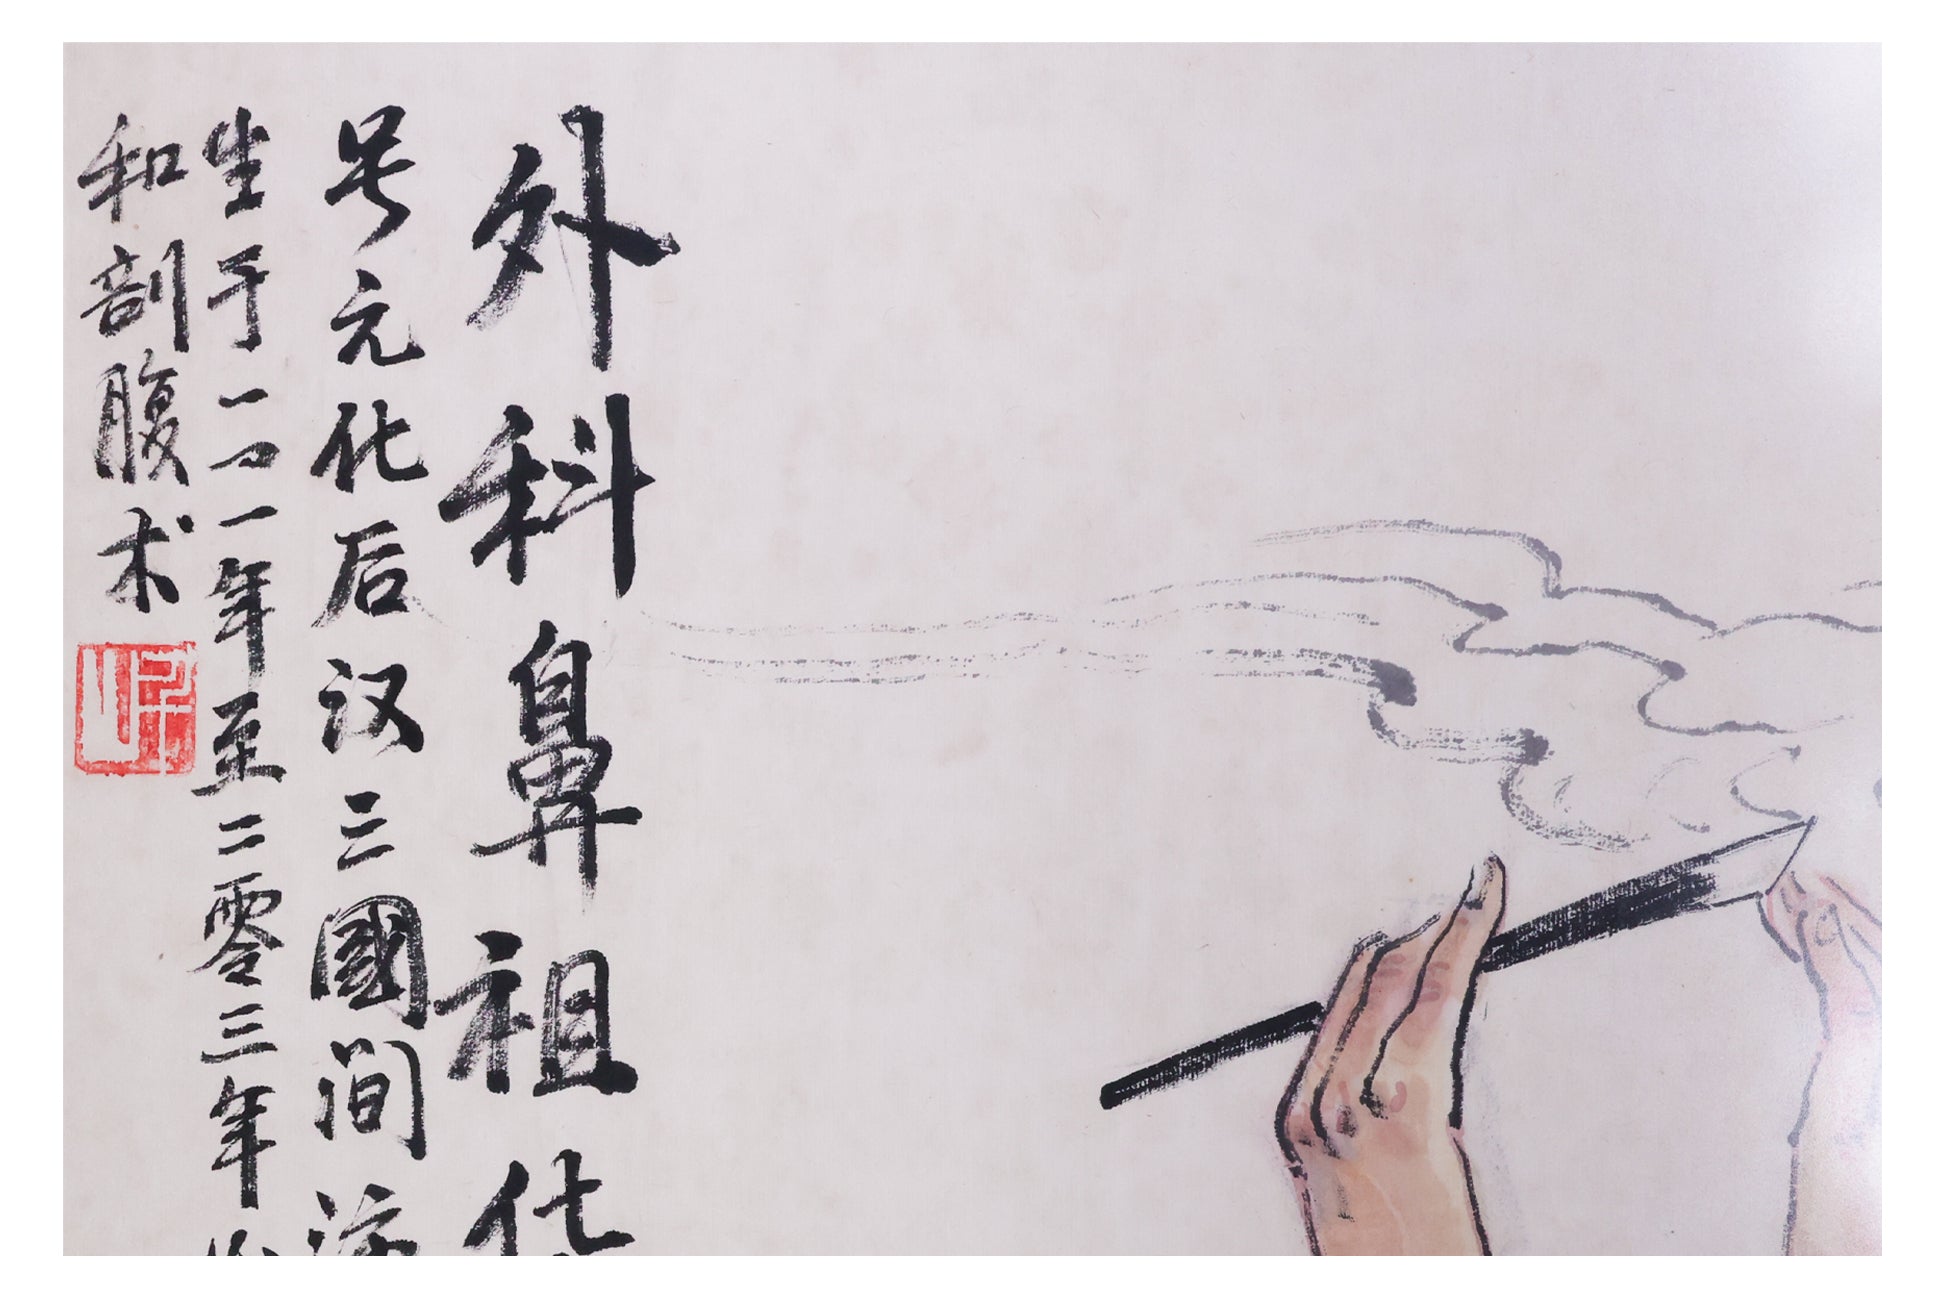 外科鼻祖华
号元化后汉三國间
生于一四一年至二零三年
和剖腹术